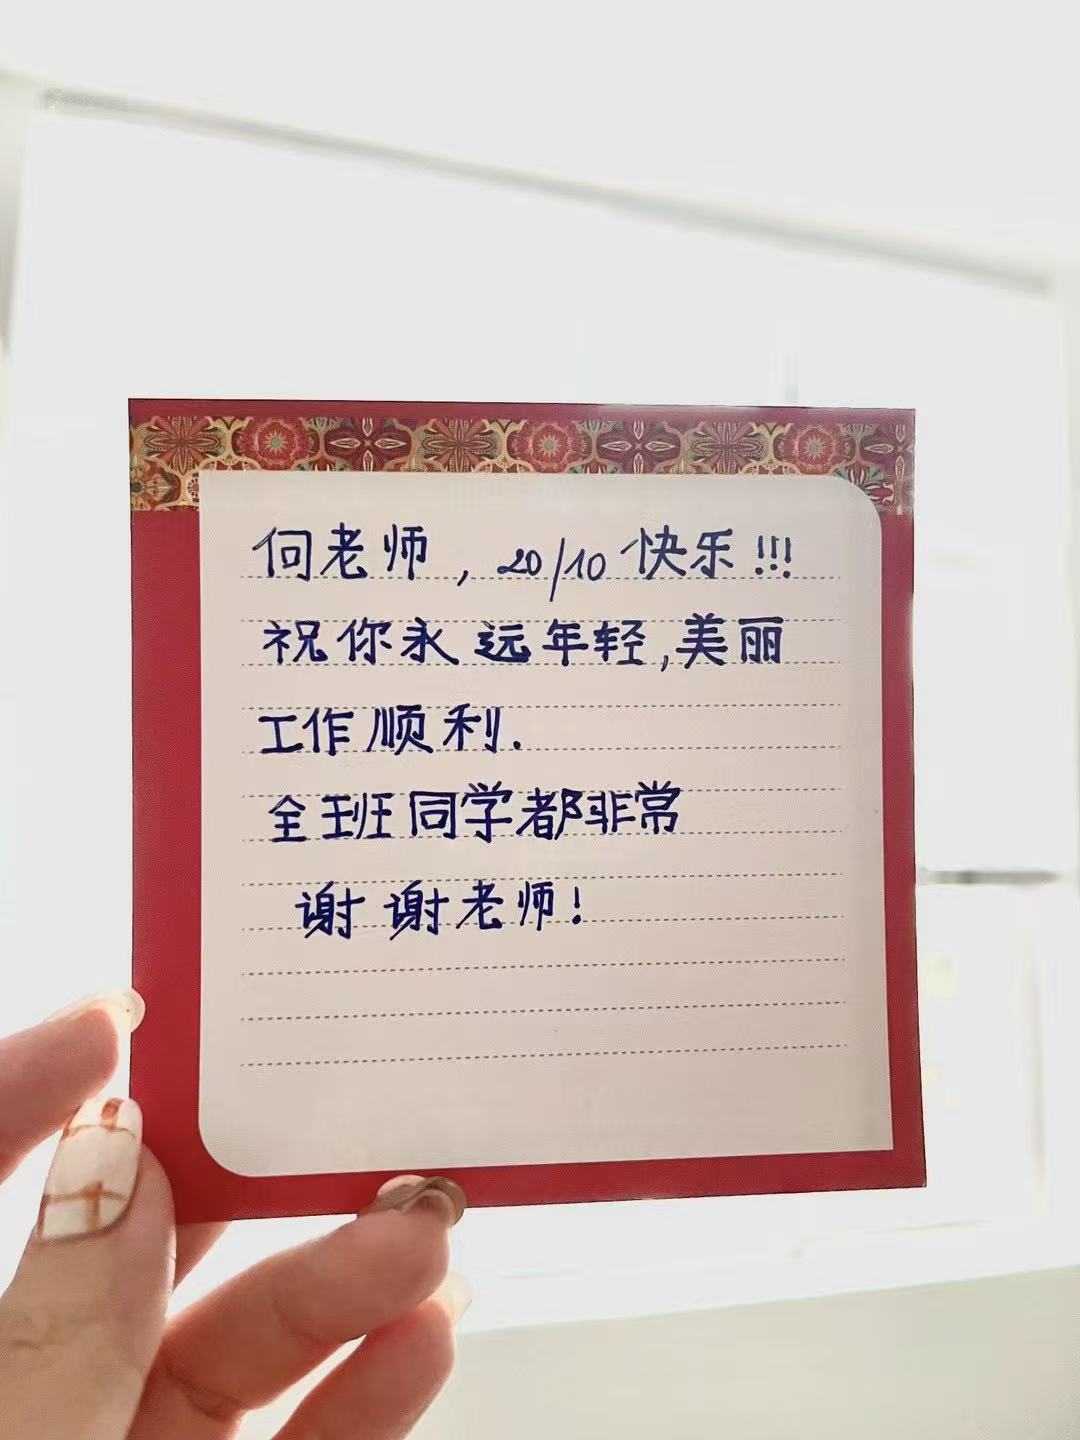 何老师，20/10快乐!!!
祝你永远年轻,美丽
工作顺利.
全班同学都非常
谢谢老师!